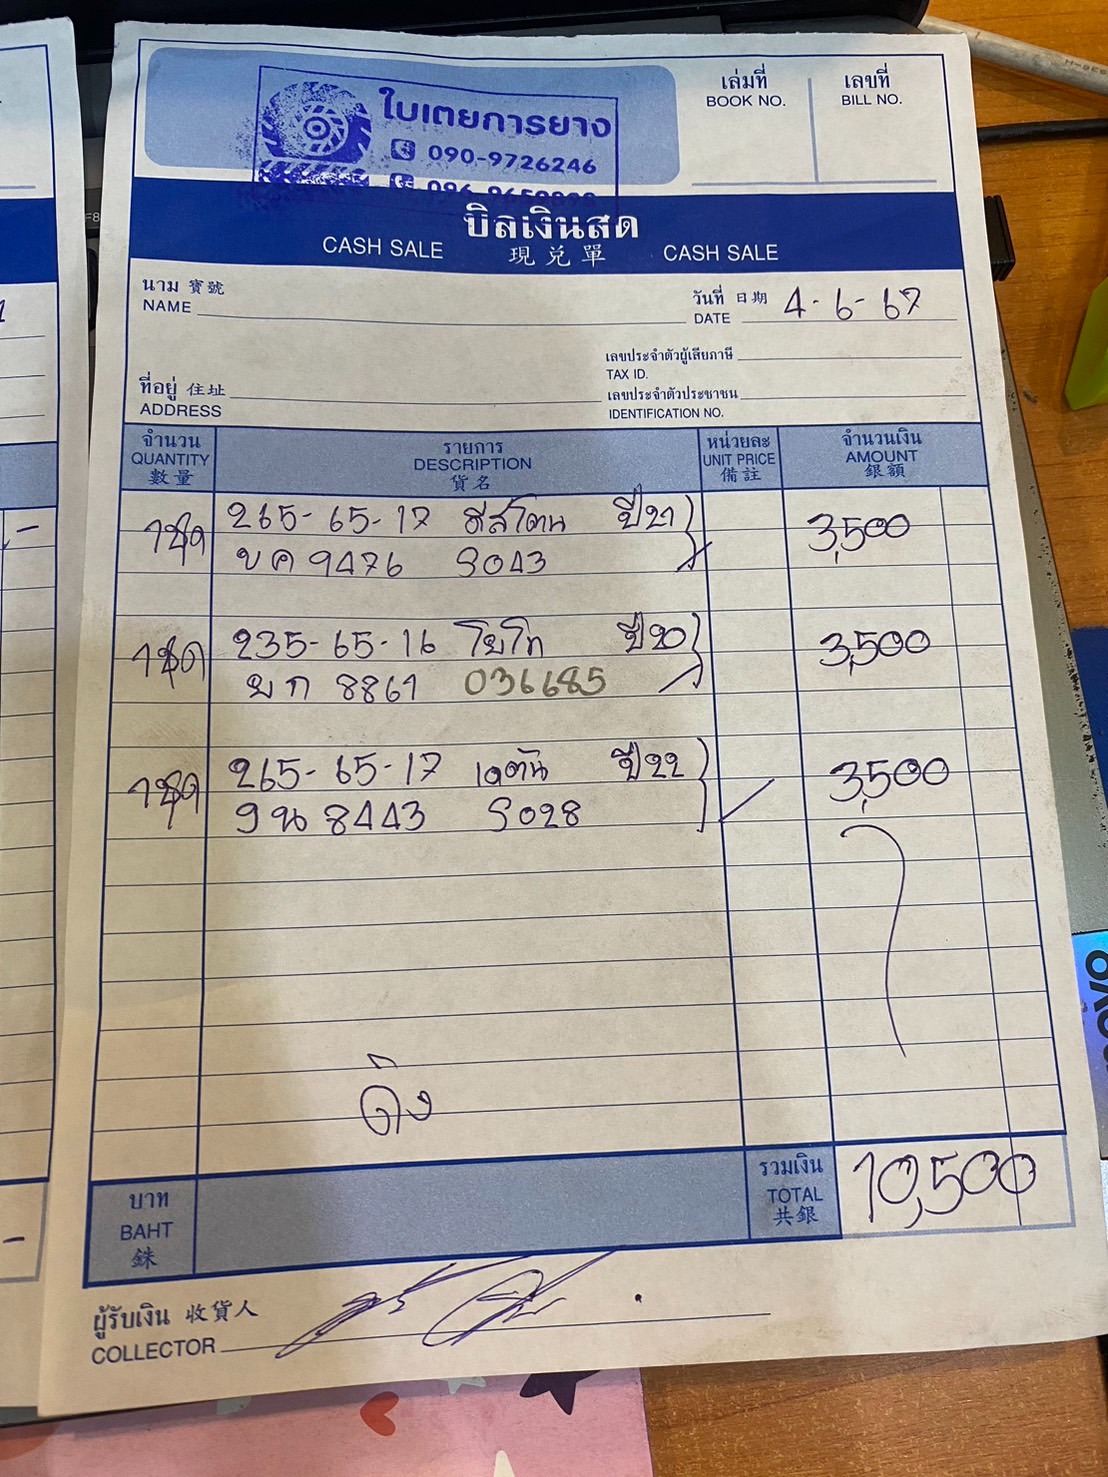 ใบเตยการยาง
090-9726246
เล่มที่
BOOK NO.
เลขที่
BILL NO.
บิลเงินสด
CASH SALE 現兑單 CASH SALE
นาม 寶號
NAME
วันที่ 日期 4-6-67
DATE
เลขประจำตัวผู้เสียภาษี
TAX ID.
ที่อยู่ 住址
ADDRESS
เลขประจำตัวประชาชน
IDENTIFICATION NO.
จำนวน
QUANTITY
數量
รายการ
DESCRIPTION
貨名
หน่วยละ
UNIT PRICE
備註
จำนวนเงิน
AMOUNT
銀額
1ชุด 265-65-17 ปี21 3,500
ขค 9476 S043
1ชุด 235-65-16 โยโก ปี20 3,500
ยก 8861 036685
1ชุด 265-65-17 ปี22 3,500
8443 S028
บาท
BAHT
銖
รวมเงิน
TOTAL
共銀
10,500
ผู้รับเงิน 收貨人
COLLECTOR
F8